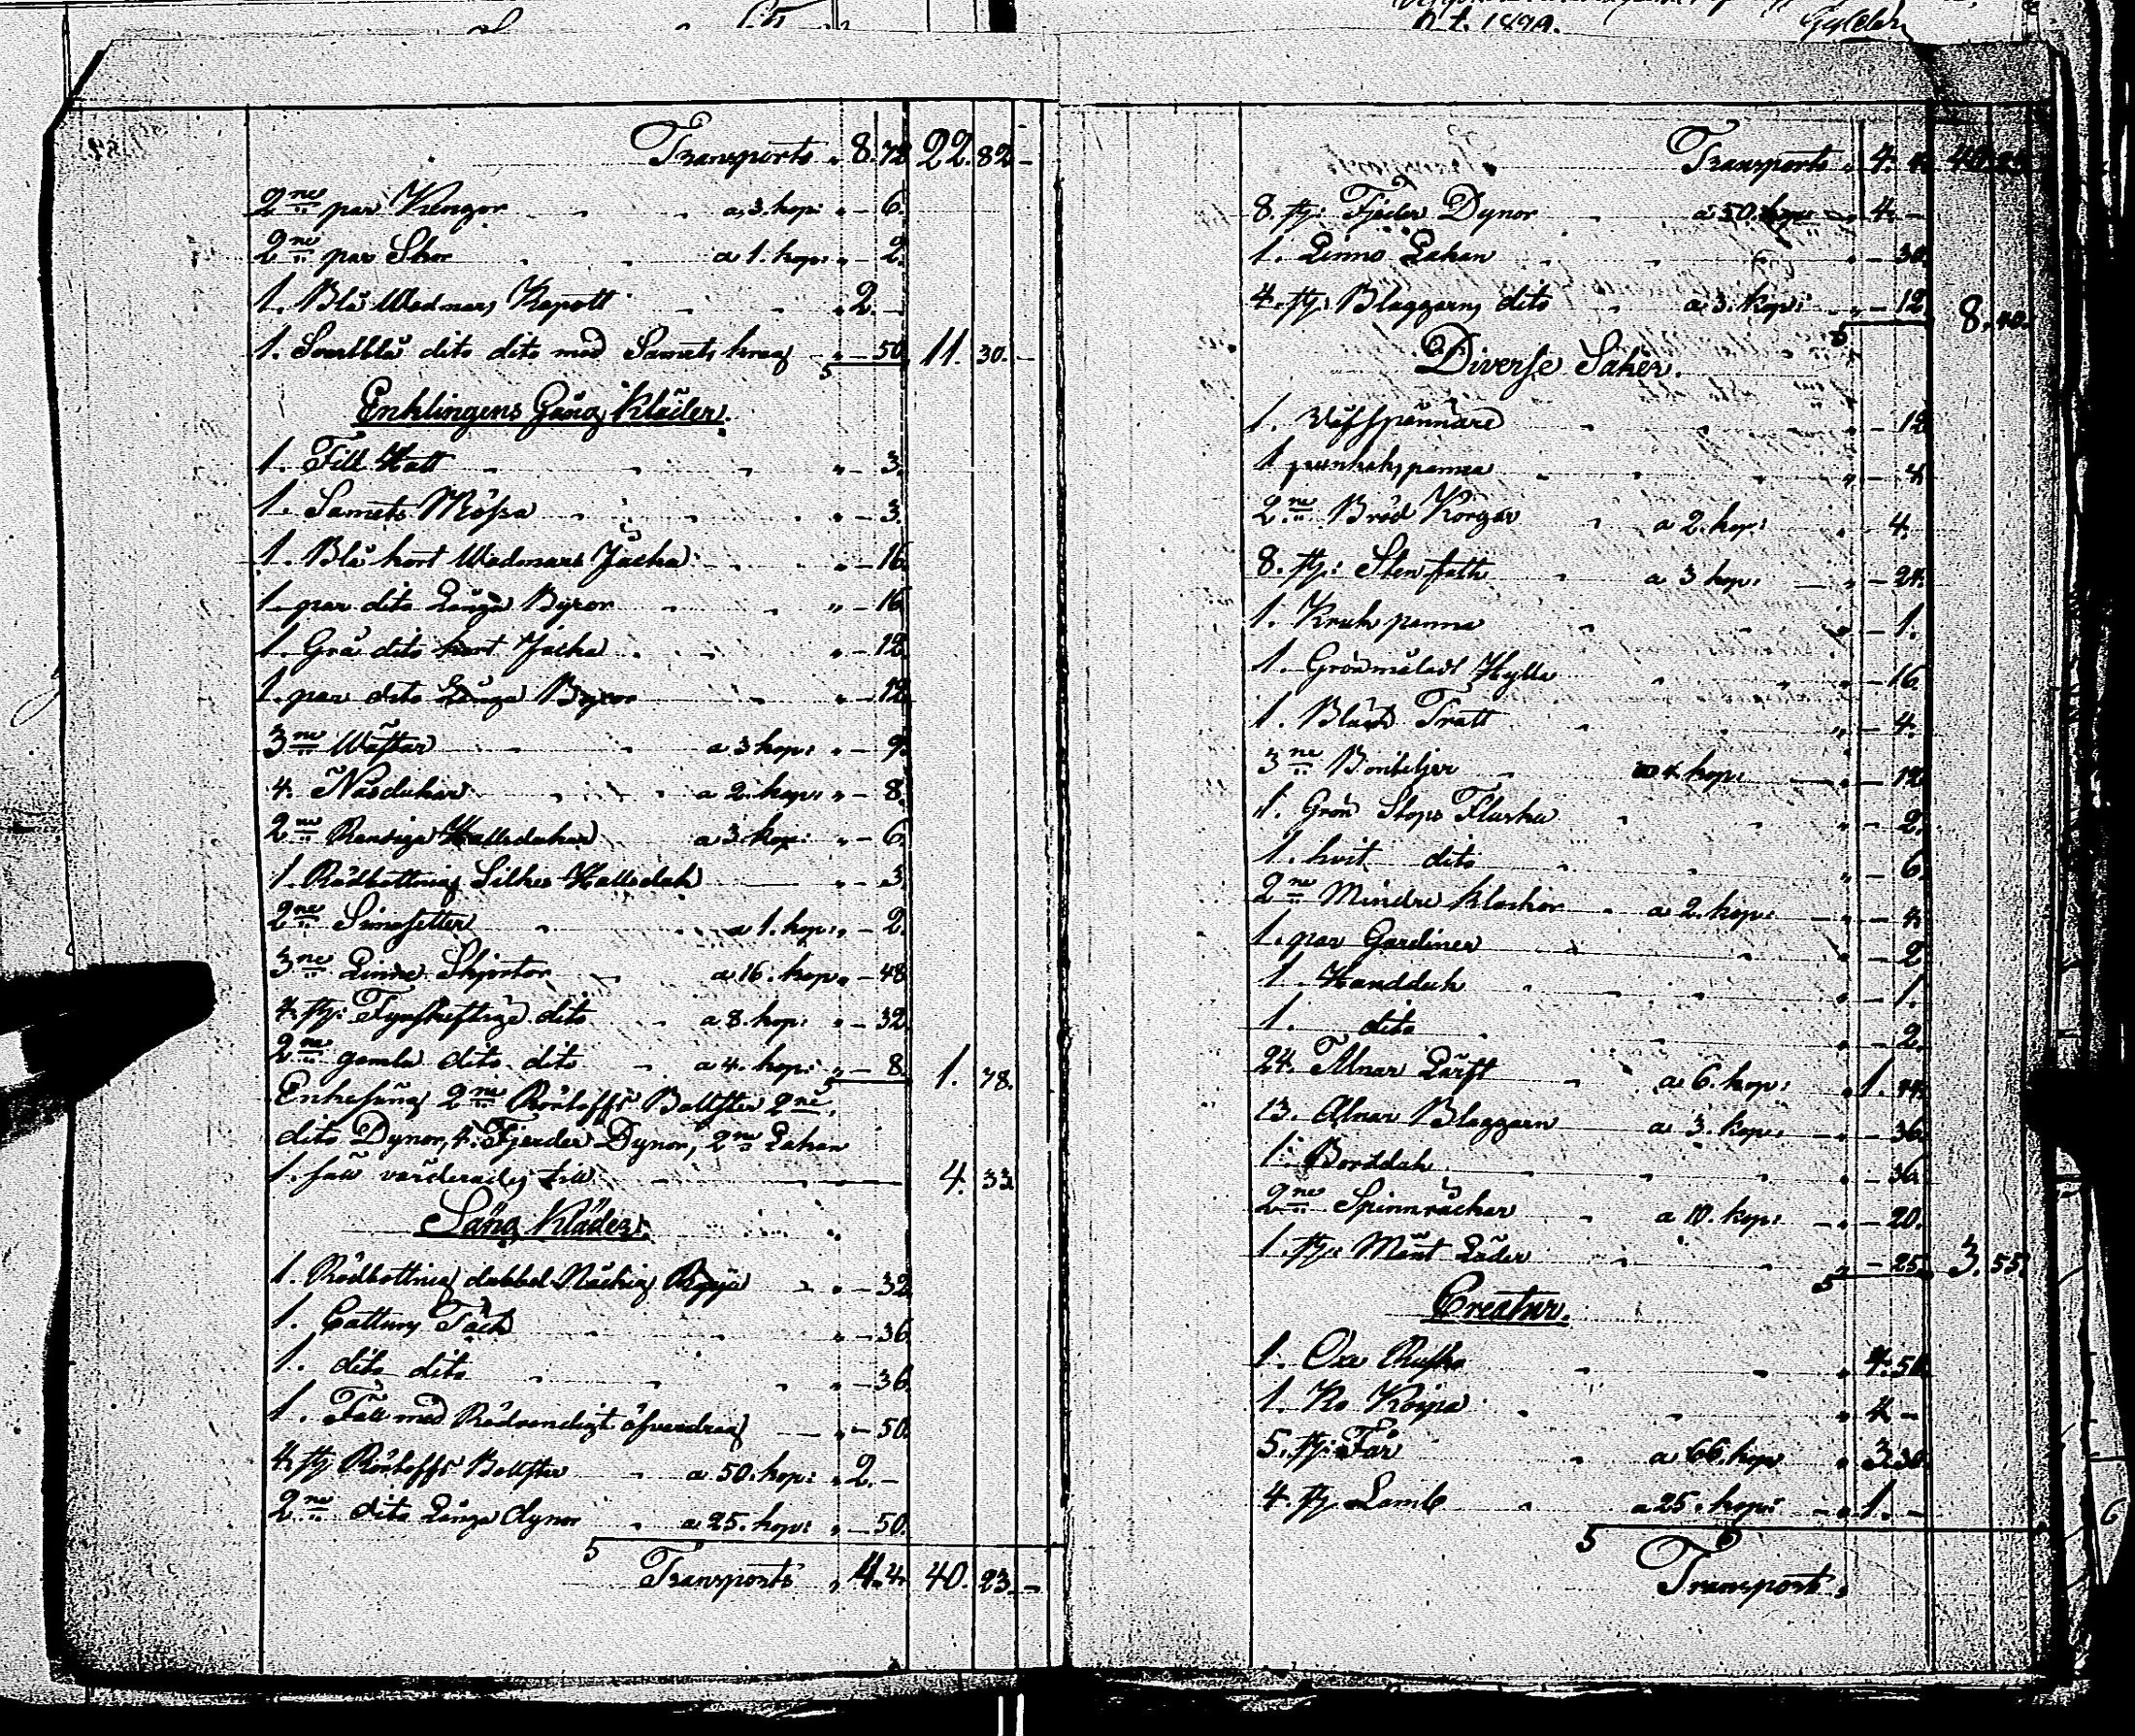 n. t. 1899.
Transports „ 8. 72 22. 82 -
2ne par Kengor a 3. kop: „ - 6.
2ne par Skor a 1. kop: „ - 2.
1. Blå Wadmars Kapott „ 2. -
1. Svartblå dito dito med Samets krag „ - 50. 11. 30. -
Enklingens Gång Kläder.
1. Fillt Hatt „ - 3.
1. Samets Mössa „ - 3.
1. Blå kort Wadmars Jacka „ - 16.
1. par dito Långa Byxor „ - 16.
1. Grå dito kort Jacka „ - 12.
1. par dito Långa Byxor „ - 12.
3ne Wästar a 3 kop: „ - 9.
4. Näsdukar a 2. kop: „ - 8.
2ne Randiga Hallsdukar a 3. kop: „ - 6.
1. Rödbottnig Silkes Hallsduk „ - 3.
2ne Simosetter a 1. kop: „ - 2.
3ne Linne Skjortor a 16. kop „ - 48.
4. st: Tyskeftige dito a 8. kop: „ - 32.
2ne gamla dito dito a 4. kop: „ - 8. 1. 78.
Enkesäng 2ne Rörtoffs Bollster 2ne
dito Dynor, 4. Fjeder Dynor, 2ne Lakan
1. fäll värderades till 4. 33.
Säng Kläder.
1. Rödbottnig dubbel Näckig Ryja „ - 32.
1. Cattuns Täck „ - 36.
1. dito dito „ - 36.
1. Fäll med Rödrandigt öfverdrag „ - 50.
4. st: Rörtoffs Bollster a 50. kop: „ 2. -
2ne dito Långa dynor a 25. kop: „ - 50.
Transports „ 4. 4. 40. 23. -
Transports „ 4. 4. 40. 23.
8. st: Fjeder Dynor a 50. kop: „ 4. -
1. Linne Lakan „ - 30.
4. st: Blaggarns dito a 3. kop: „ - 12. 8. 46.
Diverse Saker.
1. Väfspännare „ - 12.
1 pannkakspanna „ - 4
2ne Bröd Korgar a 2. kop: „ 4.
8. st: Stenfath a 3 kop: „ - 24.
1. Kruk panna „ - 1.
1. Grönmåladt Hylla „ - 16.
1. Bläck Tratt „ - 4.
3ne Bouteljer a 4 kop: „ - 12
1. Grön Stops Flaska „ - 2.
1. hvit dito „ - 6.
2ne Mindre Klockor a 2. kop: „ - 4.
1. par Gardiner „ - 2
1. Handduk „ - 1.
1. dito „ - 2.
24. Alnar Lärft a 6. kop: „ 1. 44.
13. Alnar Blaggarn a 3. kop: „ - 36.
1. Bordduk „ - 36.
2ne Spinnråckar a 10. kop: „ - 20.
1. st: Läder „ - 25. 3. 55.
Creatur.
1. Oxe Rusko „ 4. 50.
1. Ko Koipa „ 4 -
5. st: Får a 66. kop „ 3. 30.
4. st: Lamb a 25. kop: „ 1. -
Transport.